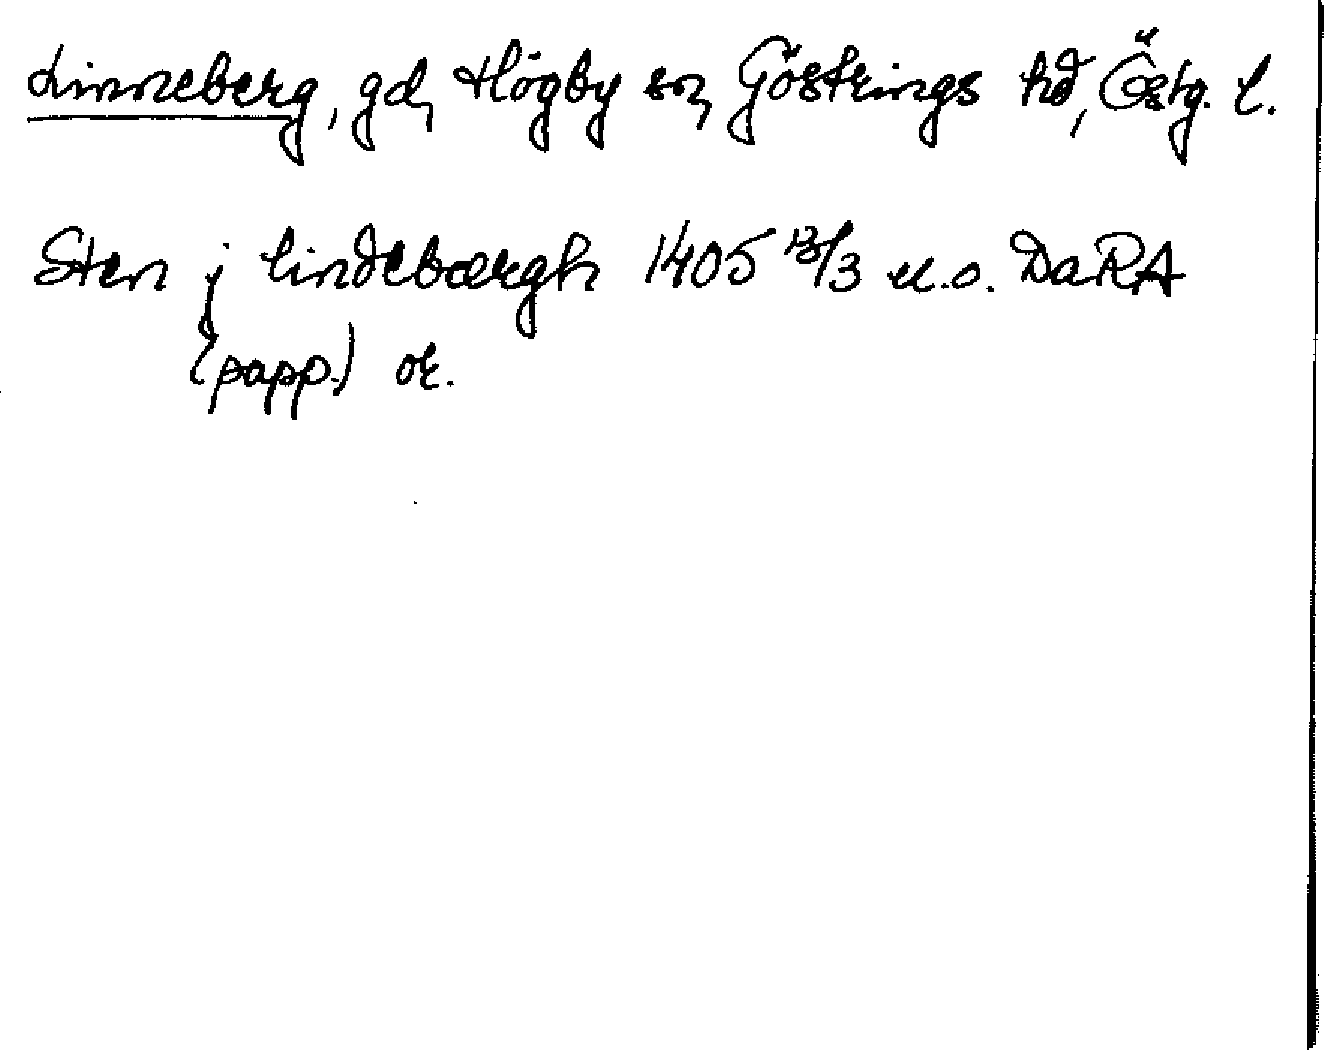 Linneberg, gd, Högby sn, Göstrings hd, Östg. l.
Sten j lindebærgh 1405 13/3 u.o. DaRA
(papp.) or.